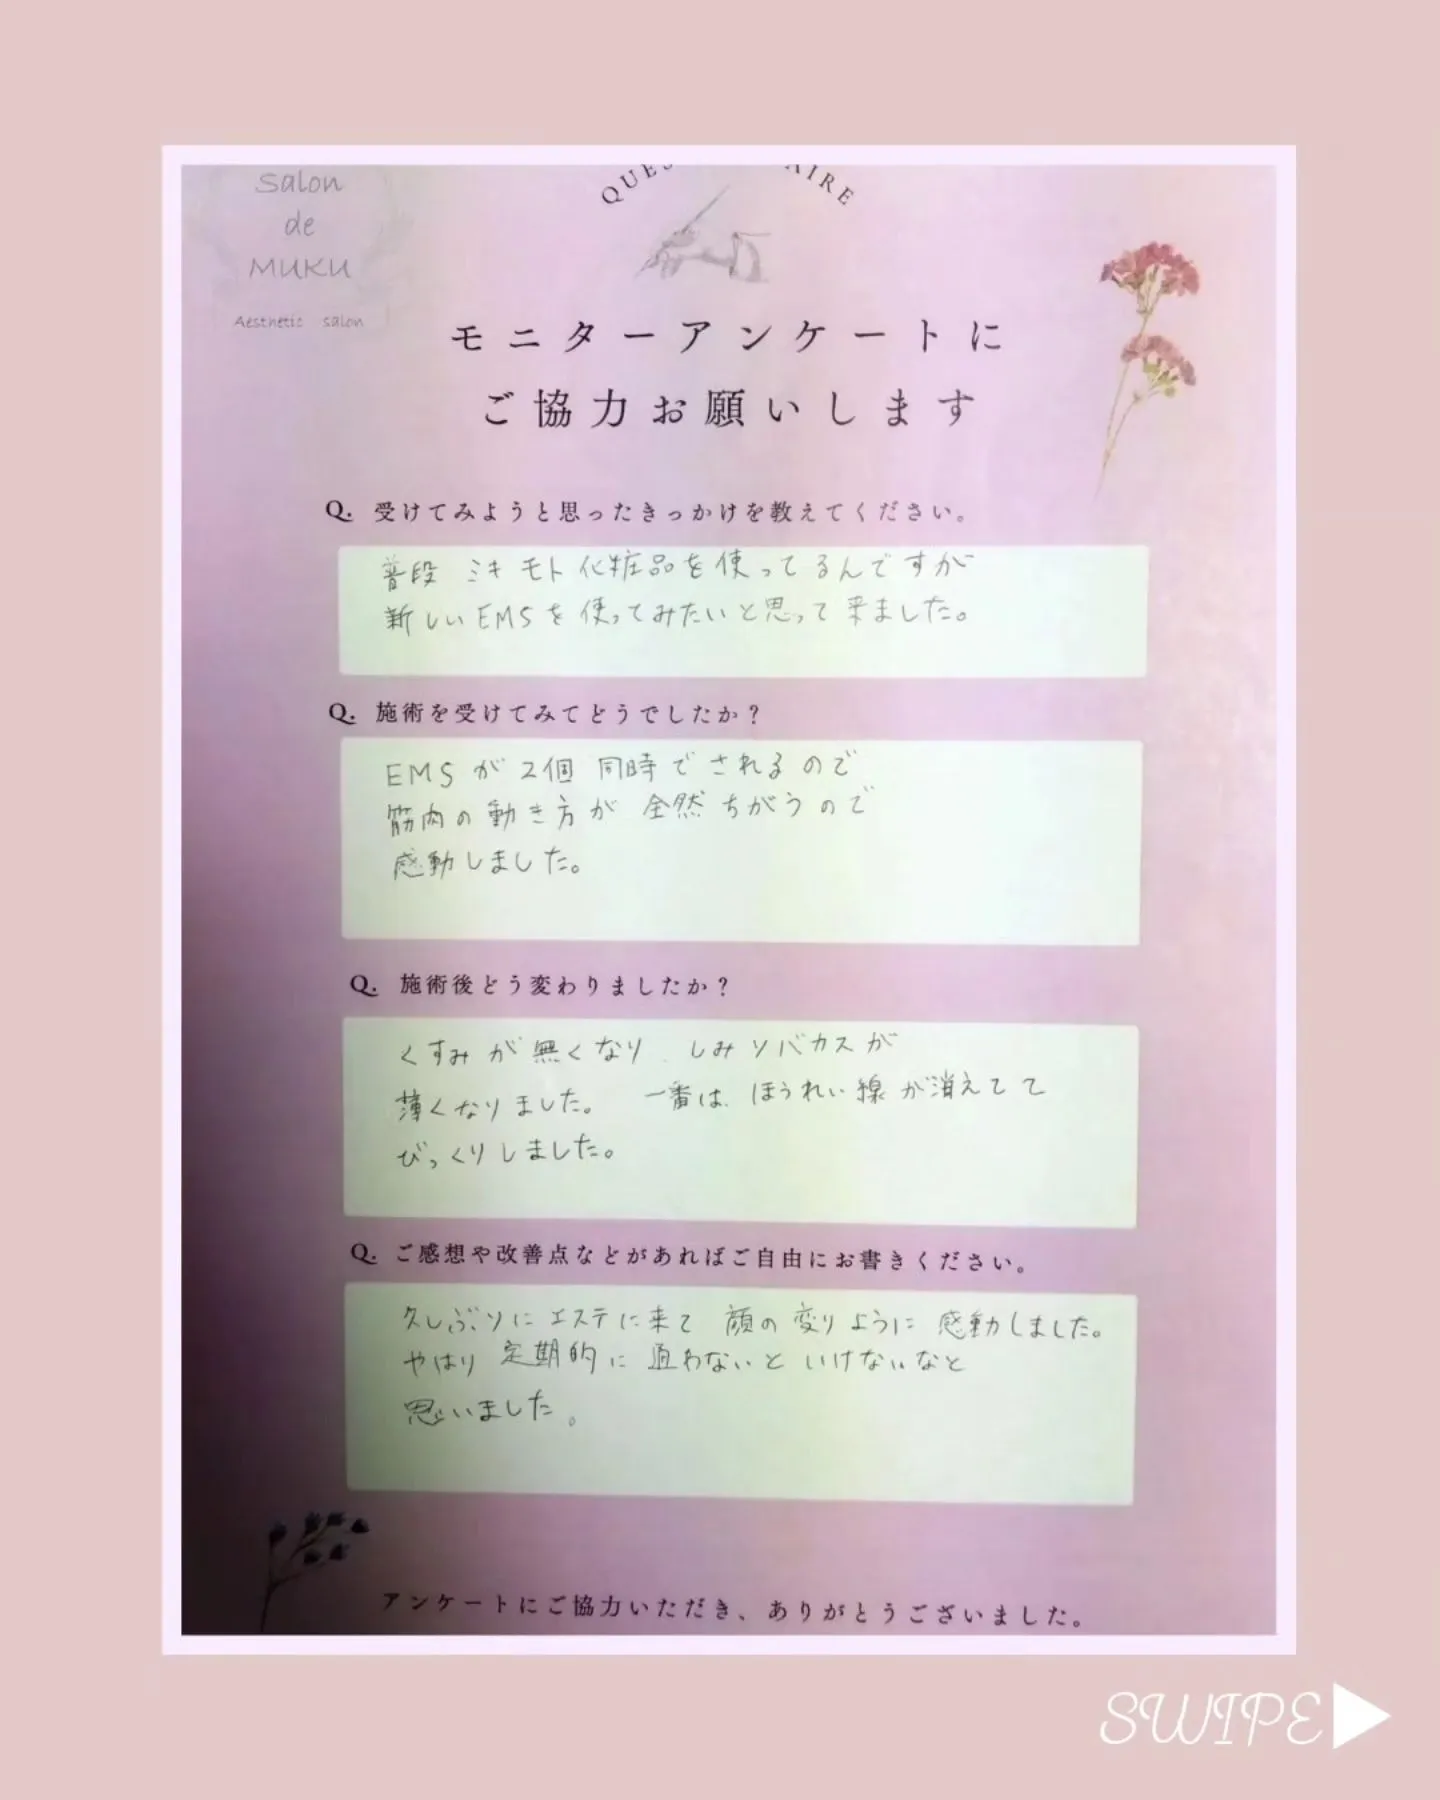 Salon
de
MUKU
Aesthetic salon
モニターアンケートに
ご協力お願いします
Q. 受けてみようと思ったきっかけを教えてください。
普段 ミキモト化粧品を使ってるんですが
新しいEMSを使ってみたいと思って来ました。
Q. 施術を受けてみてどうでしたか？
EMSが2個 同時でされるので
筋肉の動き方が 全然ちがうので
感動しました。
Q. 施術後どう変わりましたか？
くすみが無くなり、しみソバカスが
薄くなりました。 一番は、ほうれい線が消えてて
びっくりしました。
Q. ご感想や改善点などがあればご自由にお書きください。
久しぶりにエステに来て 顔の変りように 感動しました。
やはり 定期的に 通わないと いけないなと
思いました。
アンケートにご協力いただき、ありがとうございました。
SWIPE